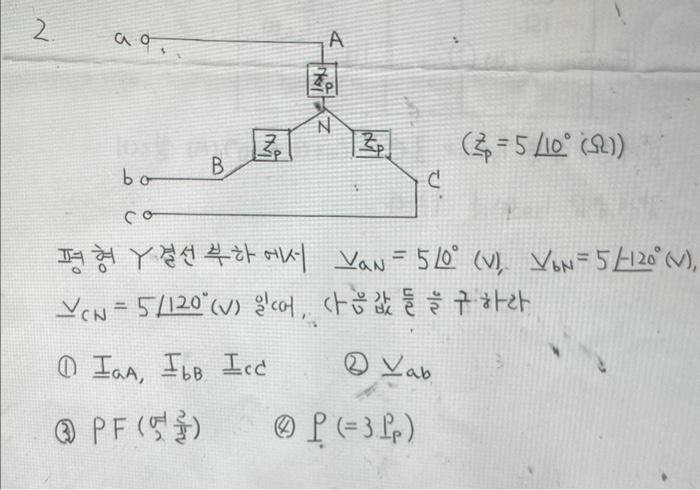 2.
a A
Z_p
N
Z_p Z_p (Z_p = 5∠10° (Ω))
B
b C
c
평형 Y결선 부하에서 V_aN = 5∠0° (V), V_bN = 5∠-120° (V),
V_CN = 5∠120° (V) 일 때, 다음 값들을 구하라
① I_aA, I_bB I_cC ② V_ab
③ PF (역률) ④ P (= 3P_p)